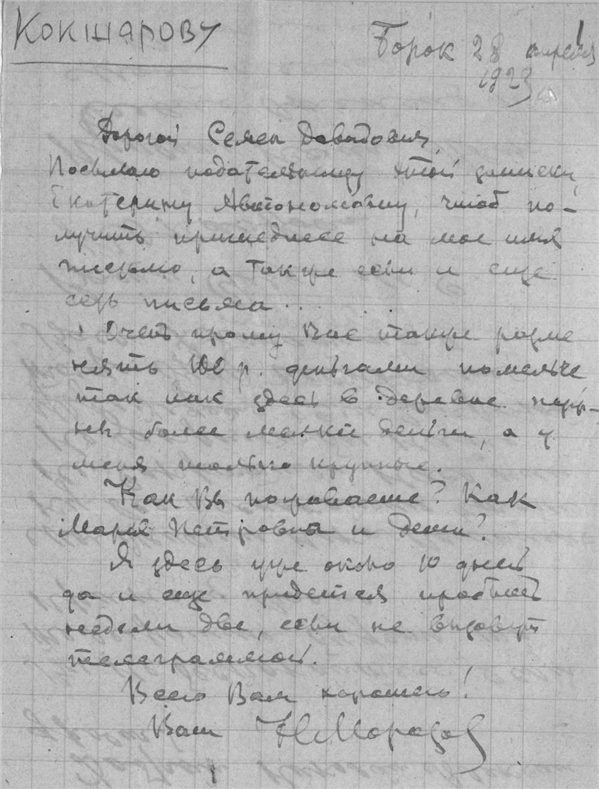 Кокшарову
Борок 28 апреля
1923
Дорогой Семен Давыдович,
Посылаю подательницу этой записки
Екатерину Автономовну, чтоб по-
лучить пришедшее на мое имя
письмо, а также если и еще
есть письма.
Очень прошу Вас также разме
нять 100 р. деньгами помельче
так как здесь в деревне нуж-
ны более мелкие деньги, а у
меня только крупные.
Как Вы поживаете? Как
Марья Петровна и дети?
Я здесь уже около 10 дней
да и еще придется пробыть
недели две, если не вызовут
телеграммой.
Всего Вам хорошего!
Ваш Н Морозов